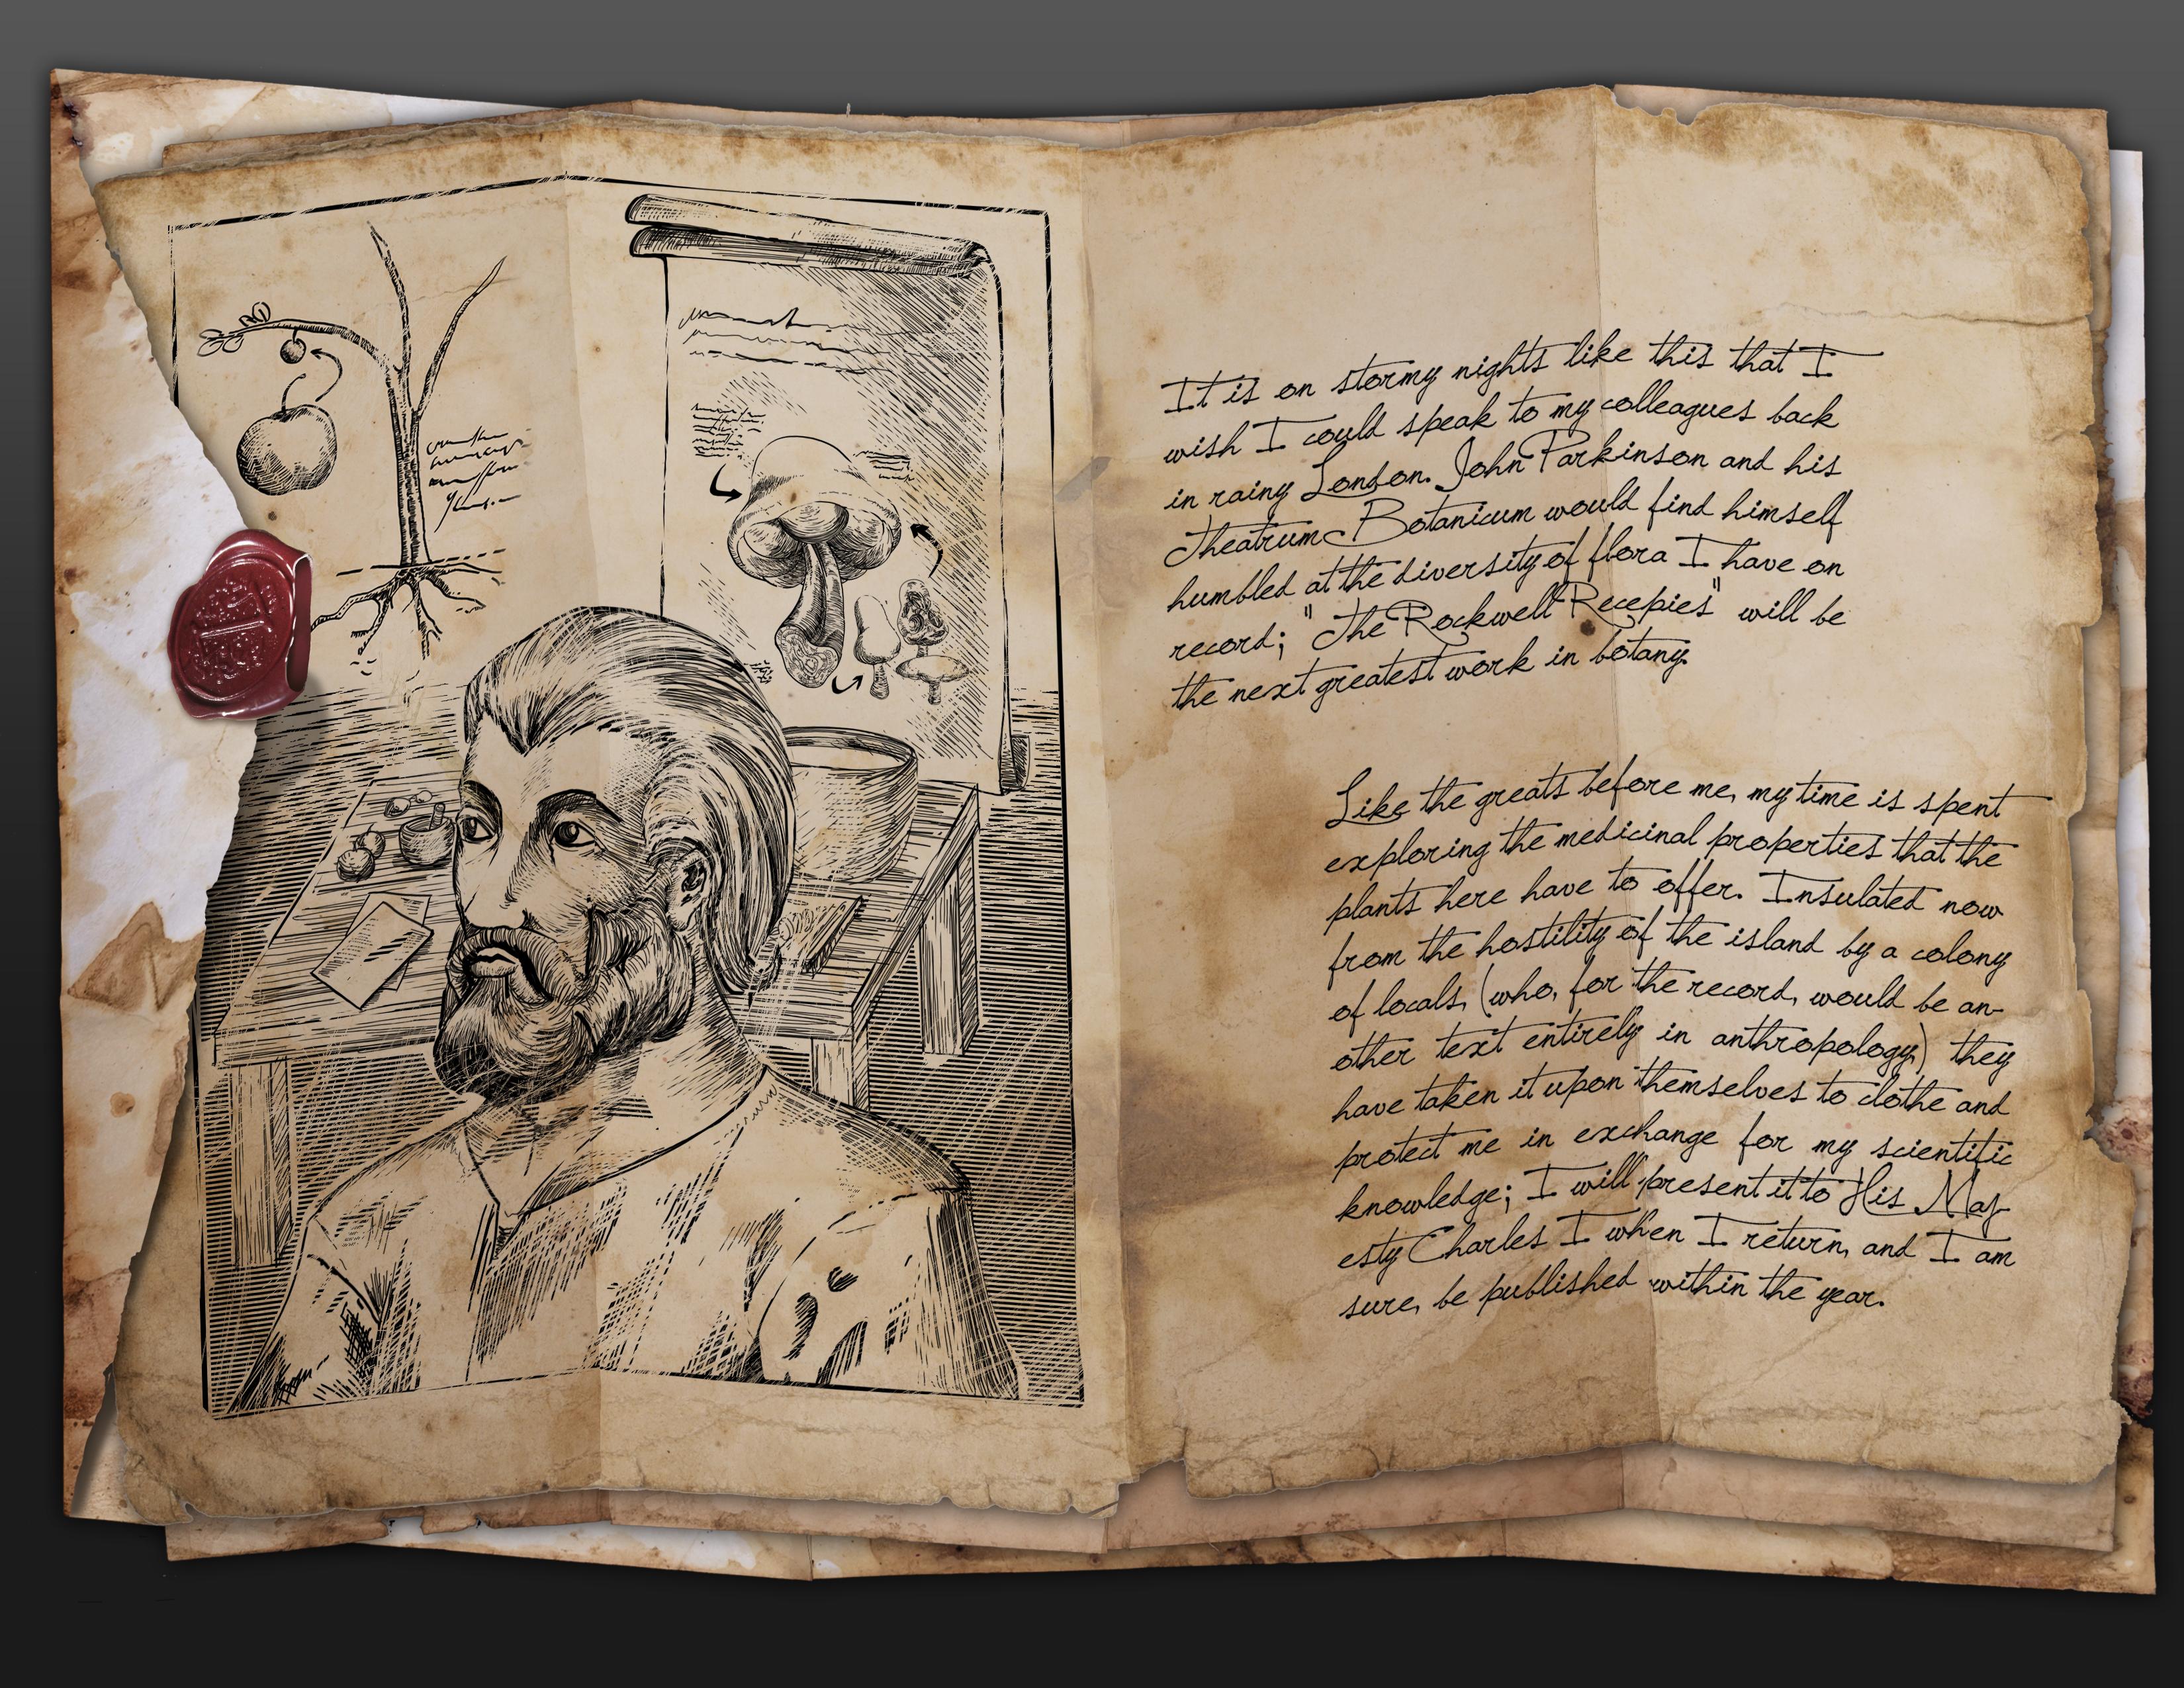 It is on stormy nights like this that I
wish I could speak to my colleagues back
in rainy London. John Parkinson and his
Theatrum Botanicum would find himself
humbled at the diversity of flora I have on
record; "The Rockwell Recepies" will be
the next greatest work in botany.
Like the greats before me, my time is spent
exploring the medicinal properties that the
plants here have to offer. Insulated now
from the hostility of the island by a colony
of locals, (who, for the record, would be an-
other text entirely in anthropology) they
have taken it upon themselves to clothe and
protect me in exchange for my scientific
knowledge; I will present it to His Maj-
esty Charles I when I return, and I am
sure, be published within the year.